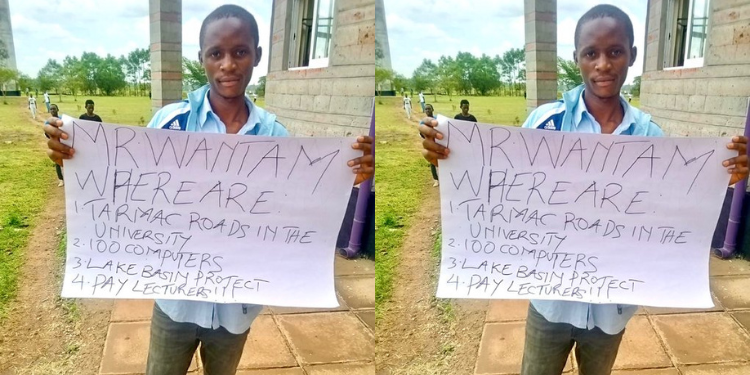 MR. WANTAM
WHERE ARE:
1. TARMAC ROADS IN THE
UNIVERSITY
2. 100 COMPUTERS
3. LAKE BASIN PROJECT
4. PAY LECTURERS!!!
MR. WANTAM
WHERE ARE:
1. TARMAC ROADS IN THE
UNIVERSITY
2. 100 COMPUTERS
3. LAKE BASIN PROJECT
4. PAY LECTURERS!!!